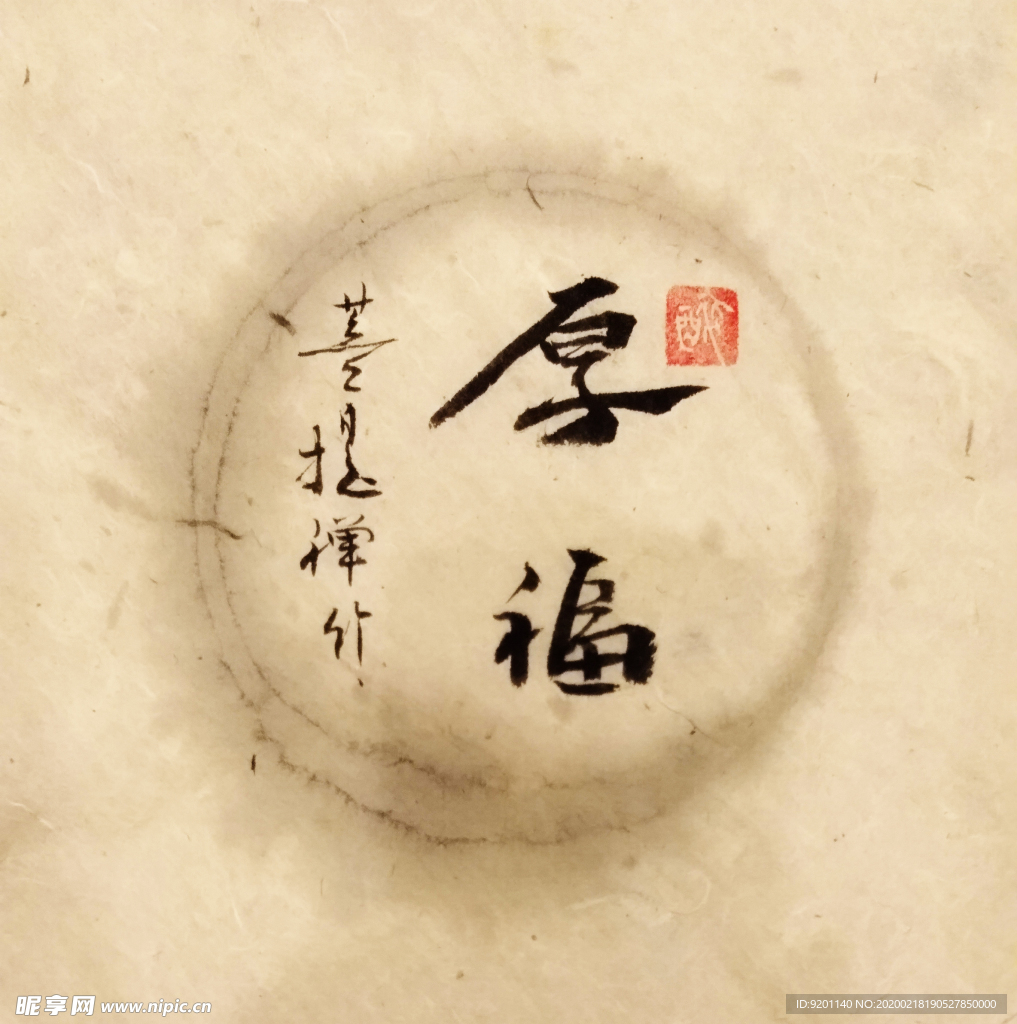 厚福
禅竹
昵享网 www.nipic.cn
ID:9201140 NO:20200218190527850000